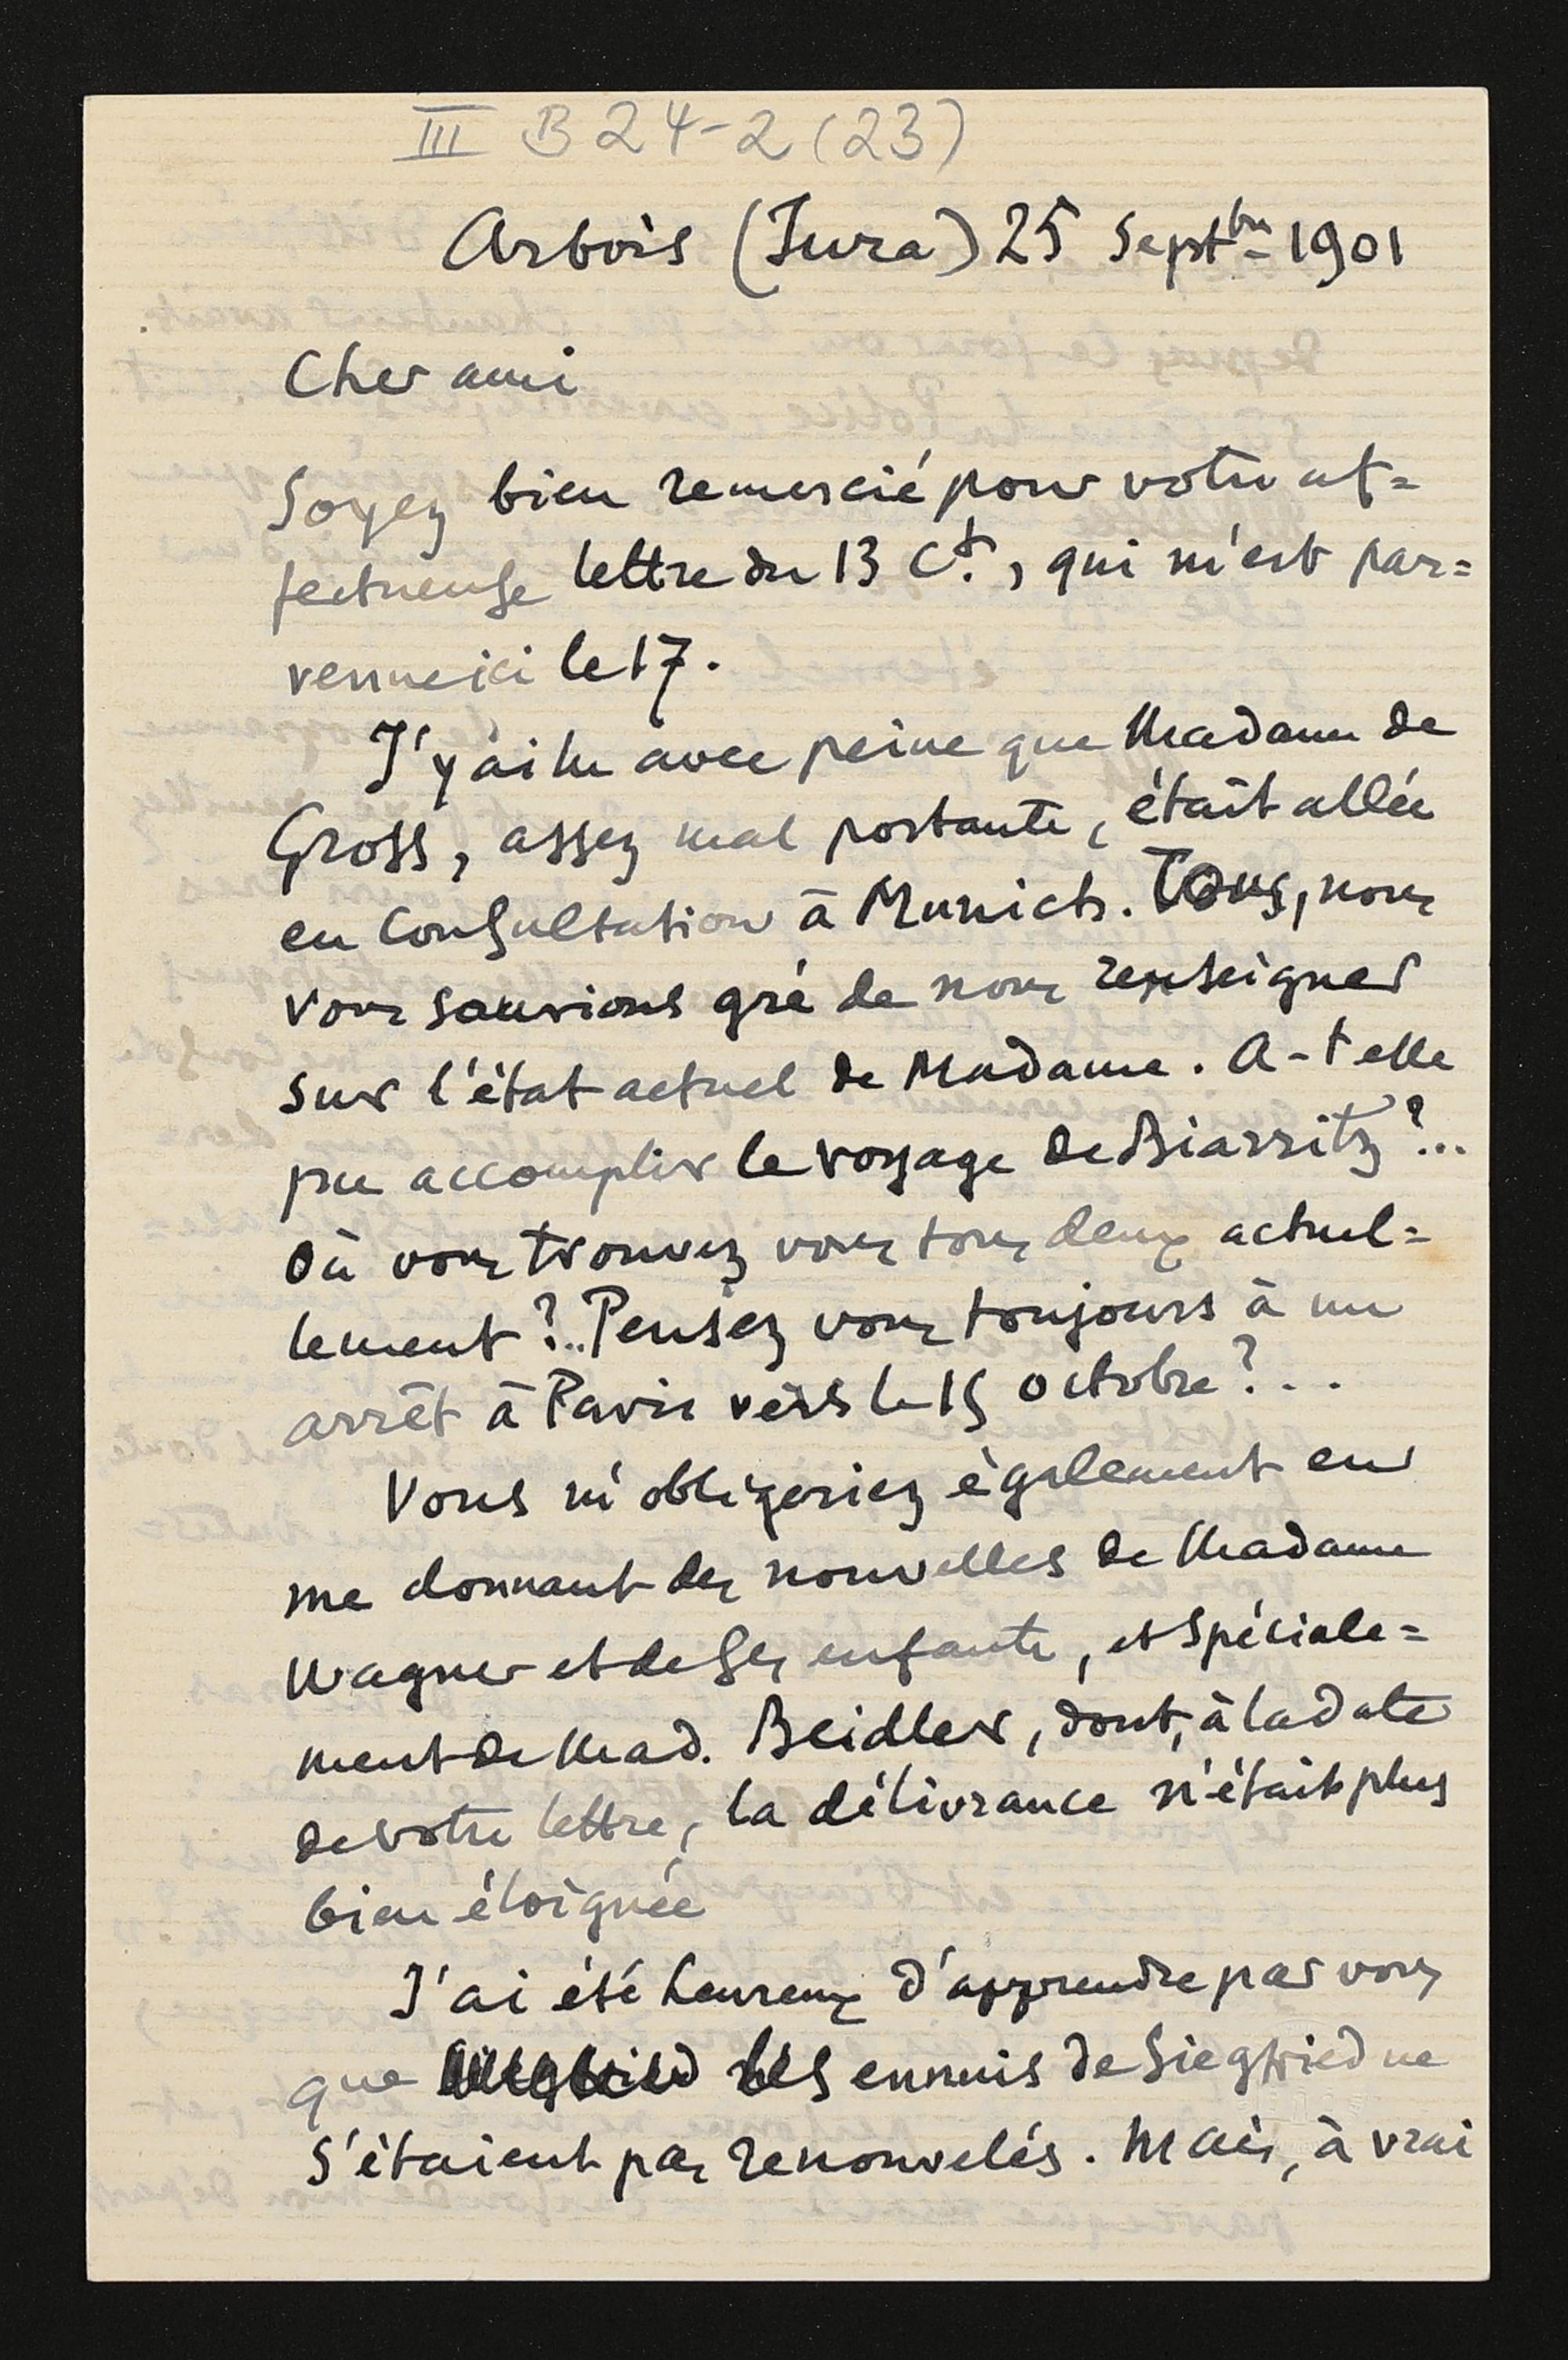 III B 24-2 (23)
Arbois (Jura) 25 Septbre 1901
Cher ami
Soyez bien remercié pour votre af=
fectueuse lettre du 13 Ct., qui m'est par=
venue ici le 17.
J'y ai lu avec peine que Madame de
Gross, assez mal portante, était allée
en consultation à Munich. Tous, nous
vous saurions gré de nous renseigner
sur l'état actuel de Madame. A-t elle
pu accomplir le voyage de Biarritz?...
Où vous trouvez vous tous deux actuel=
lement?.. Pensez vous toujours à un
arrêt à Paris vers le 15 octobre?...
Vous m'obligeriez également en
me donnant des nouvelles de Madame
Wagner et de ses enfants, et spéciale=
ment de Mad. Beidler, dont, à la date
de votre lettre, la délivrance n'était plus
bien éloignée
J'ai été heureux d'apprendre par vous
que les ennuis de Siegfried ne
s'étaient pas renouvelés. Mais, à vrai